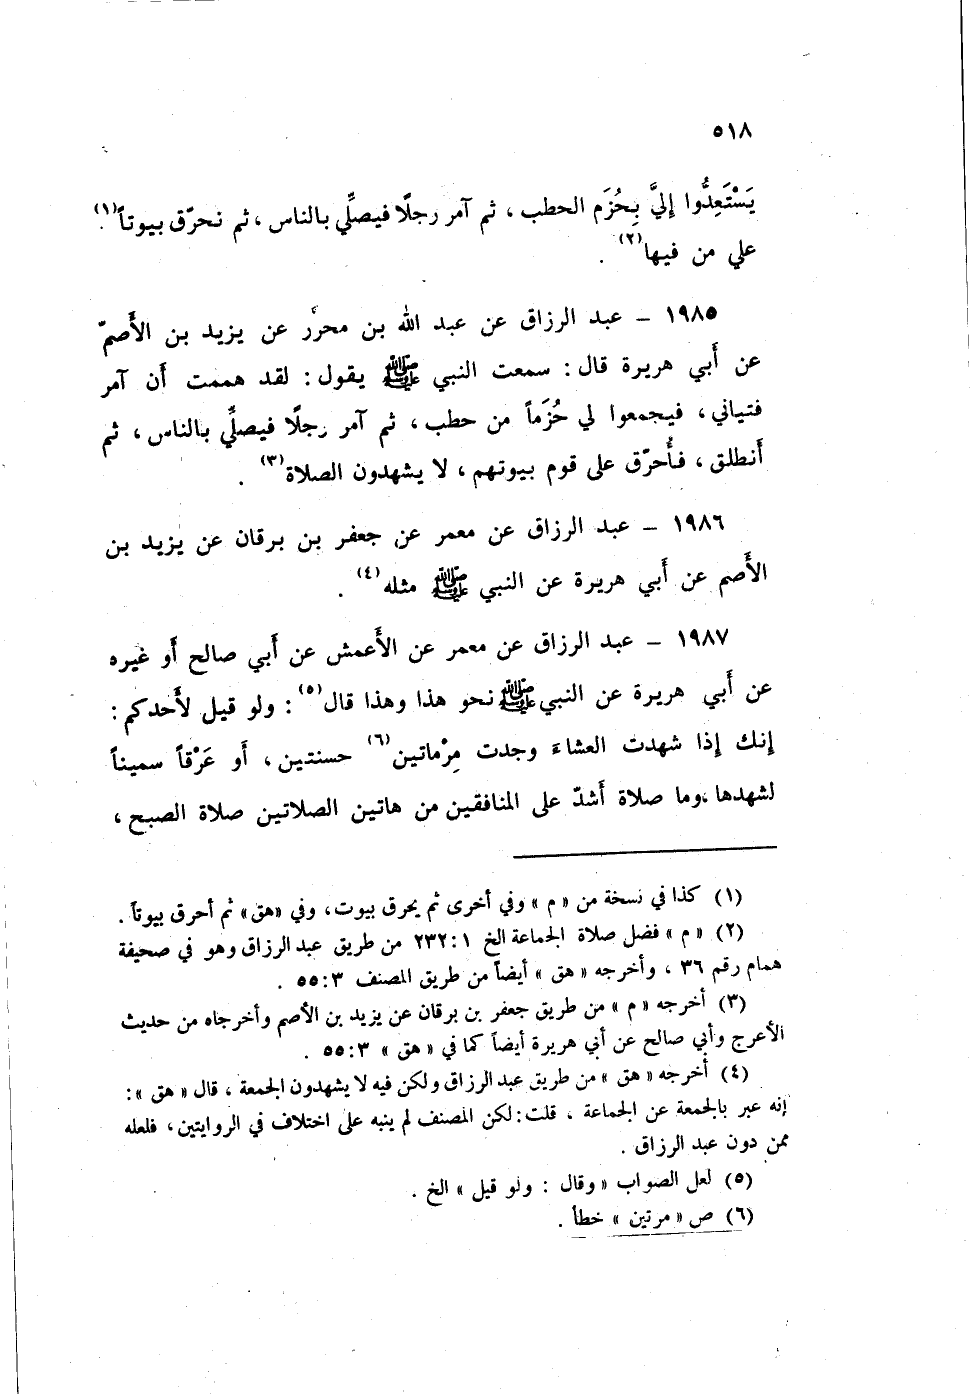 ٥١٨
يَسْتَعِدُّوا إِليَّ بِحُزَم الحطب ، ثم آمر رجلًا فيصلِّي بالناس ، ثم نحرّق بيوتاً(١).
علي من فيها(٢) .
١٩٨٥ – عبد الرزاق عن عبد الله بن محرّر عن يزيد بن الأَصمّ
عن أَبي هريرة قال : سمعت النبي ﷺ يقول : لقد هممت أَن آمر
فتياني ، فيجمعوا لي حُزَماً من حطب ، ثم آمر رجلًا فيصلِّي بالناس ، ثم
أَنطلق ، فأُحرّق على قوم بيوتهم ، لا يشهدون الصلاة(٣) .
١٩٨٦ – عبد الرزاق عن معمر عن جعفر بن برقان عن يزيد بن
الأَصم عن أَبي هريرة عن النبي ﷺ مثله(٤) .
١٩٨٧ – عبد الرزاق عن معمر عن الأَعمش عن أَبي صالح أَو غيره
عن أَبي هريرة عن النبي ﷺ نحو هذا وهذا قال(٥) : ولو قيل لأَحدكم :
إنك إذا شهدت العشاء وجدت مِرْماتين(٦) حسنتين ، أَو عَرْقاً سميناً
لشهدها ، وما صلاة أَشدّ على المنافقين من هاتين الصلاتين صلاة الصبح ،
(١) كذا في نسخة من « م » وفي أخرى ثم يحرق بيوت ، وفي « هق » ثم أحرق بيوتاً .
(٢) « م » فضل صلاة الجماعة الخ ١ : ٢٣٢ من طريق عبد الرزاق وهو في صحيفة
همام رقم ٣٦ ، وأخرجه « هق » أيضاً من طريق المصنف ٣ : ٥٥ .
(٣) أخرجه « م » من طريق جعفر بن برقان عن يزيد بن الأصم وأخرجاه من حديث
الأعرج وأبي صالح عن أبي هريرة أيضاً كما في « هق » ٣ : ٥٥ .
(٤) أخرجه « هق » من طريق عبد الرزاق ولكن فيه لا يشهدون الجمعة ، قال « هق » :
إنه عبر بالجمعة عن الجماعة ، قلت : لكن المصنف لم ينبه على اختلاف في الروايتين ، فلعله
ممن دون عبد الرزاق .
(٥) لعل الصواب « وقال : ولو قيل » الخ .
(٦) ص « مرتين » خطأ .